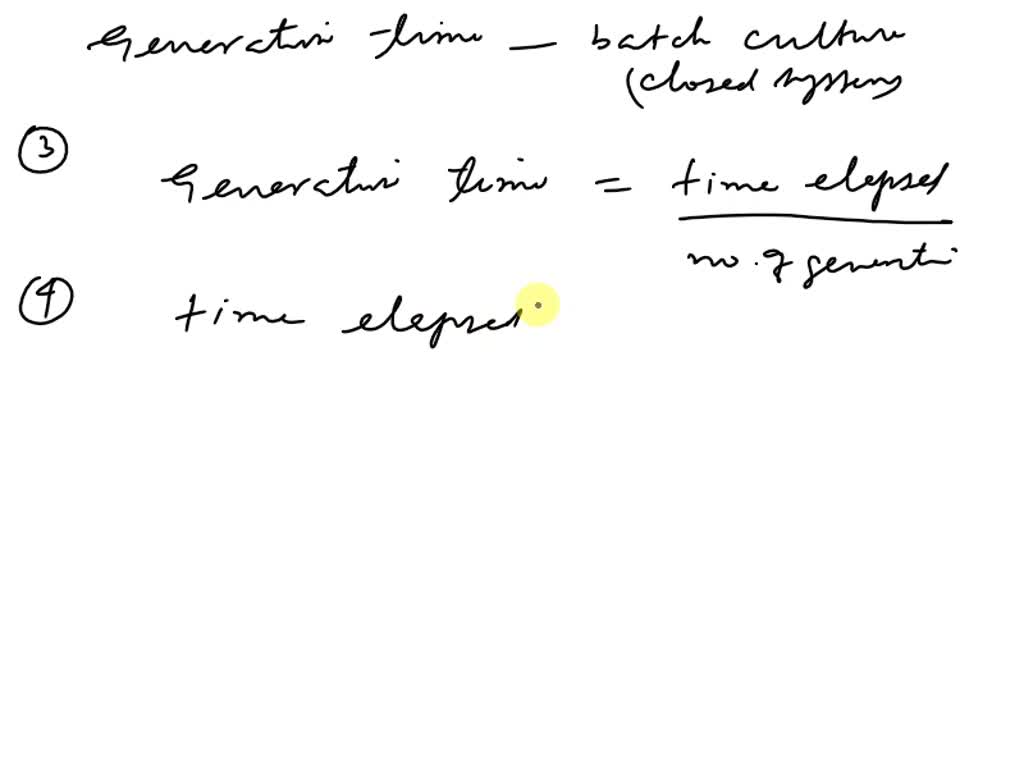 Generation time - batch culture
(closed system
③ Generation time = time elapsed
no. of generati
④ time elapsed